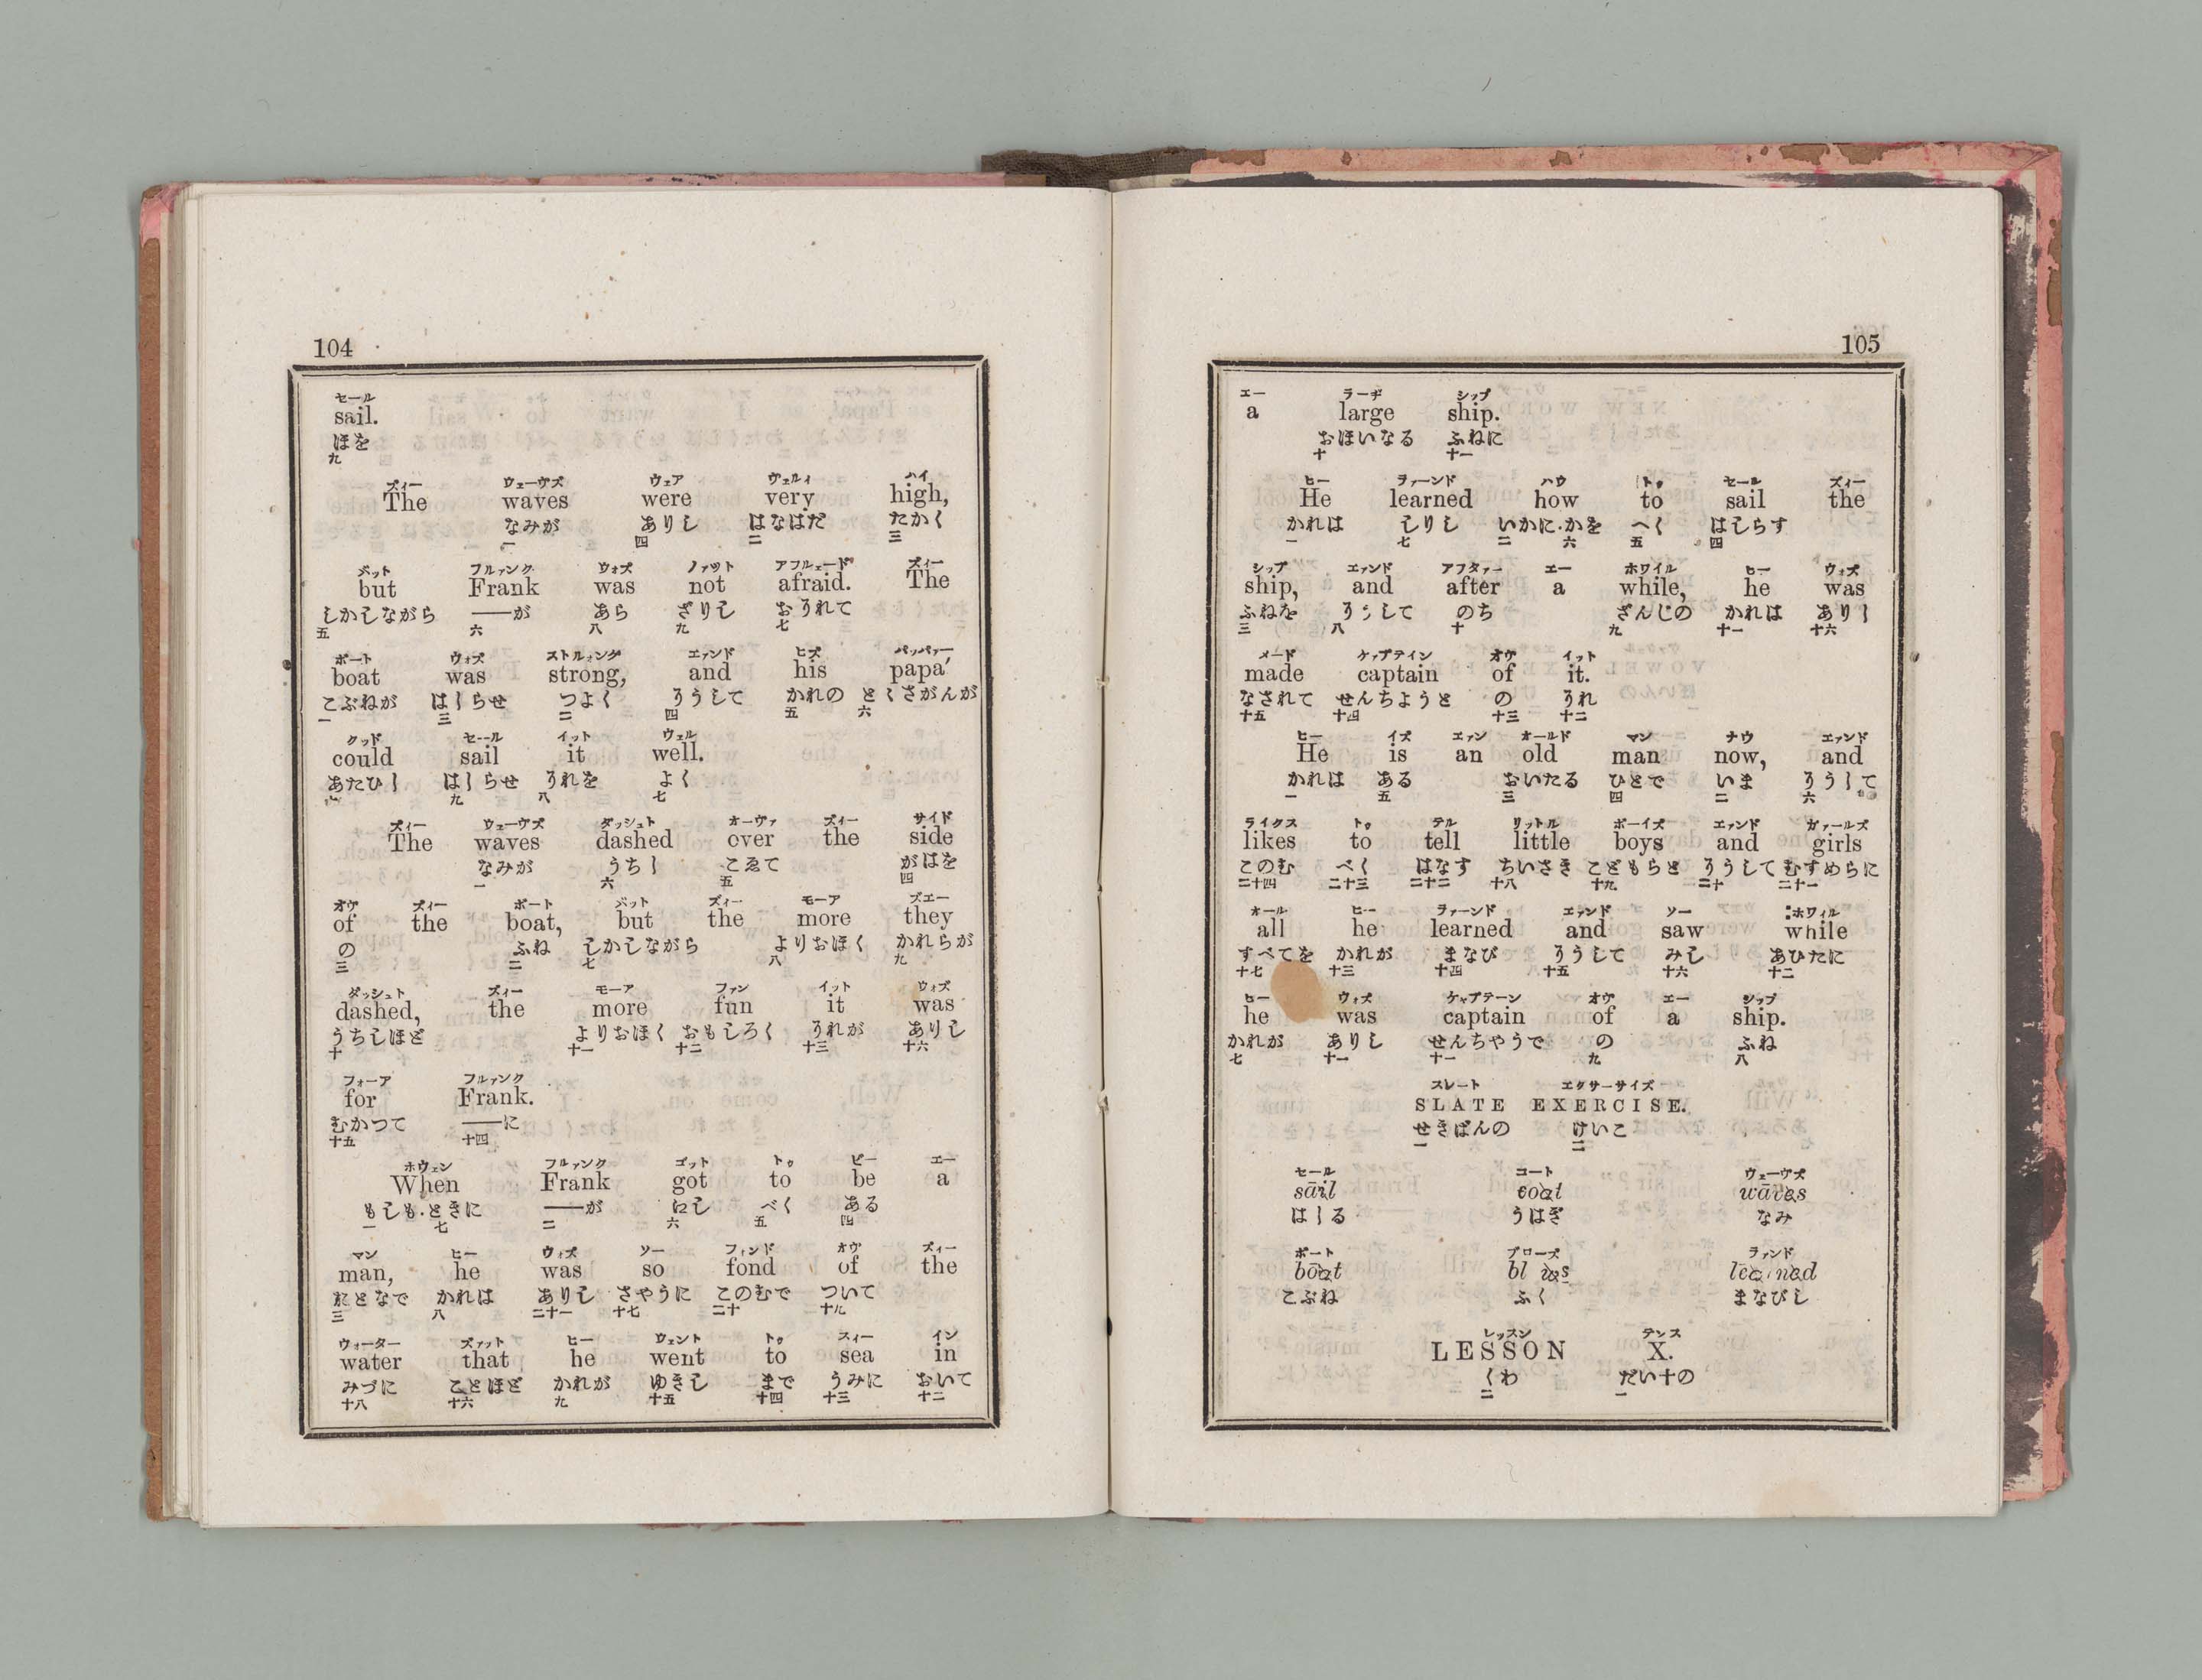 104
セール
sail.
ほを
九
ズィー ウェーヴズ ウェア ヴェルィ ハイ
The waves were very high,
なみが ありし はなはだ たかく
一 四 二 三
バット フルァンク ウォズ ノァット アフルェード ズィー
but Frank was not afraid. The
しかしながら ——が あら ざりし おそれて
五 六 八 九 七
ボート ウォズ ストルォング エァンド ヒズ パッパァー
boat was strong, and his papa'
こぶねが はしらせ つよく そうして かれの とくさがんが
一 三 二 四 五 六
クッド セール イット ウェル
could sail it well.
あたひし はしらせ それを よく
九 八 七
ズィー ウェーヴズ ダッシュト オーヴァ ズィー サイド
The waves dashed over the side
なみが うちし こゑて がはを
一 六 五 四
オヴ ズィー ボート バット ズィー モーア ズエー
of the boat, but the more they
の ふね しかしながら よりおほく かれらが
三 二 七 八 九
ダッシュト ズィー モーア ファン イット ウォズ
dashed, the more fun it was
うちしほど よりおほく おもしろく それが ありし
十 十一 十二 十三 十六
フォーア フルァンク
for Frank.
むかつて ——に
十五 十四
ホウェン フルァンク ゴット トゥ ビー エー
When Frank got to be a
もしも・ときに ——が にし べく ある
一 七 二 六 五 四
マン ヒー ウォズ ソー フォンド オヴ ズィー
man, he was so fond of the
おとなで かれは ありし さやうに このむで ついて
三 八 二十一 十七 二十 十九
ウォーター ズァット ヒー ウェント トゥ スィー イン
water that he went to sea in
みづに ことほど かれが ゆきし まで うみに おいて
十八 十六 九 十五 十四 十三 十二
105
エー ラーヂ シップ
a large ship.
おほいなる ふねに
十 十一
ヒー ラァーンド ハウ トゥ セール ズィー
He learned how to sail the
かれは しりし いかに・かを べく はしらす
一 七 二 六 五 四
シップ エァンド アフタァー エー ホワイル ヒー ウォズ
ship, and after a while, he was
ふねを そうして のち ざんじの かれは ありし
三 八 十 九 十一 十六
メード ケァプテイン オヴ イット
made captain of it.
なされて せんちようと の それ
十五 十四 十三 十二
ヒー イズ エァン オールド マン ナウ エァンド
He is an old man now, and
かれは ある おいたる ひとで いま そうして
一 五 三 四 二 六
ライクス トゥ テル リットル ボーイズ エァンド ガァールズ
likes to tell little boys and girls
このむ べく はなす ちいさき こどもらと そうして むすめらに
二十四 二十三 二十二 十八 十九 二十 二十一
オール ヒー ラァーンド エァンド ソー ホワィル
all he learned and saw while
すべてを かれが まなび そうして みし あひたに
十七 十三 十四 十五 十六 十二
ヒー ウォズ ケャプテーン オヴ エー シップ
he was captain of a ship.
かれが ありし せんちやうで の ふね
七 十一 十一 九 八
スレート エクサーサイズ
SLATE EXERCISE.
せきばんの けいこ
一 二
セール コート ウェーヴズ
sāil coat wāves
はしる うはぎ なみ
ボート ブローズ ラァンド
bōat
こぶね ふく まなびし
レッスン テンス
LESSON X.
くわ だい十の
二 一